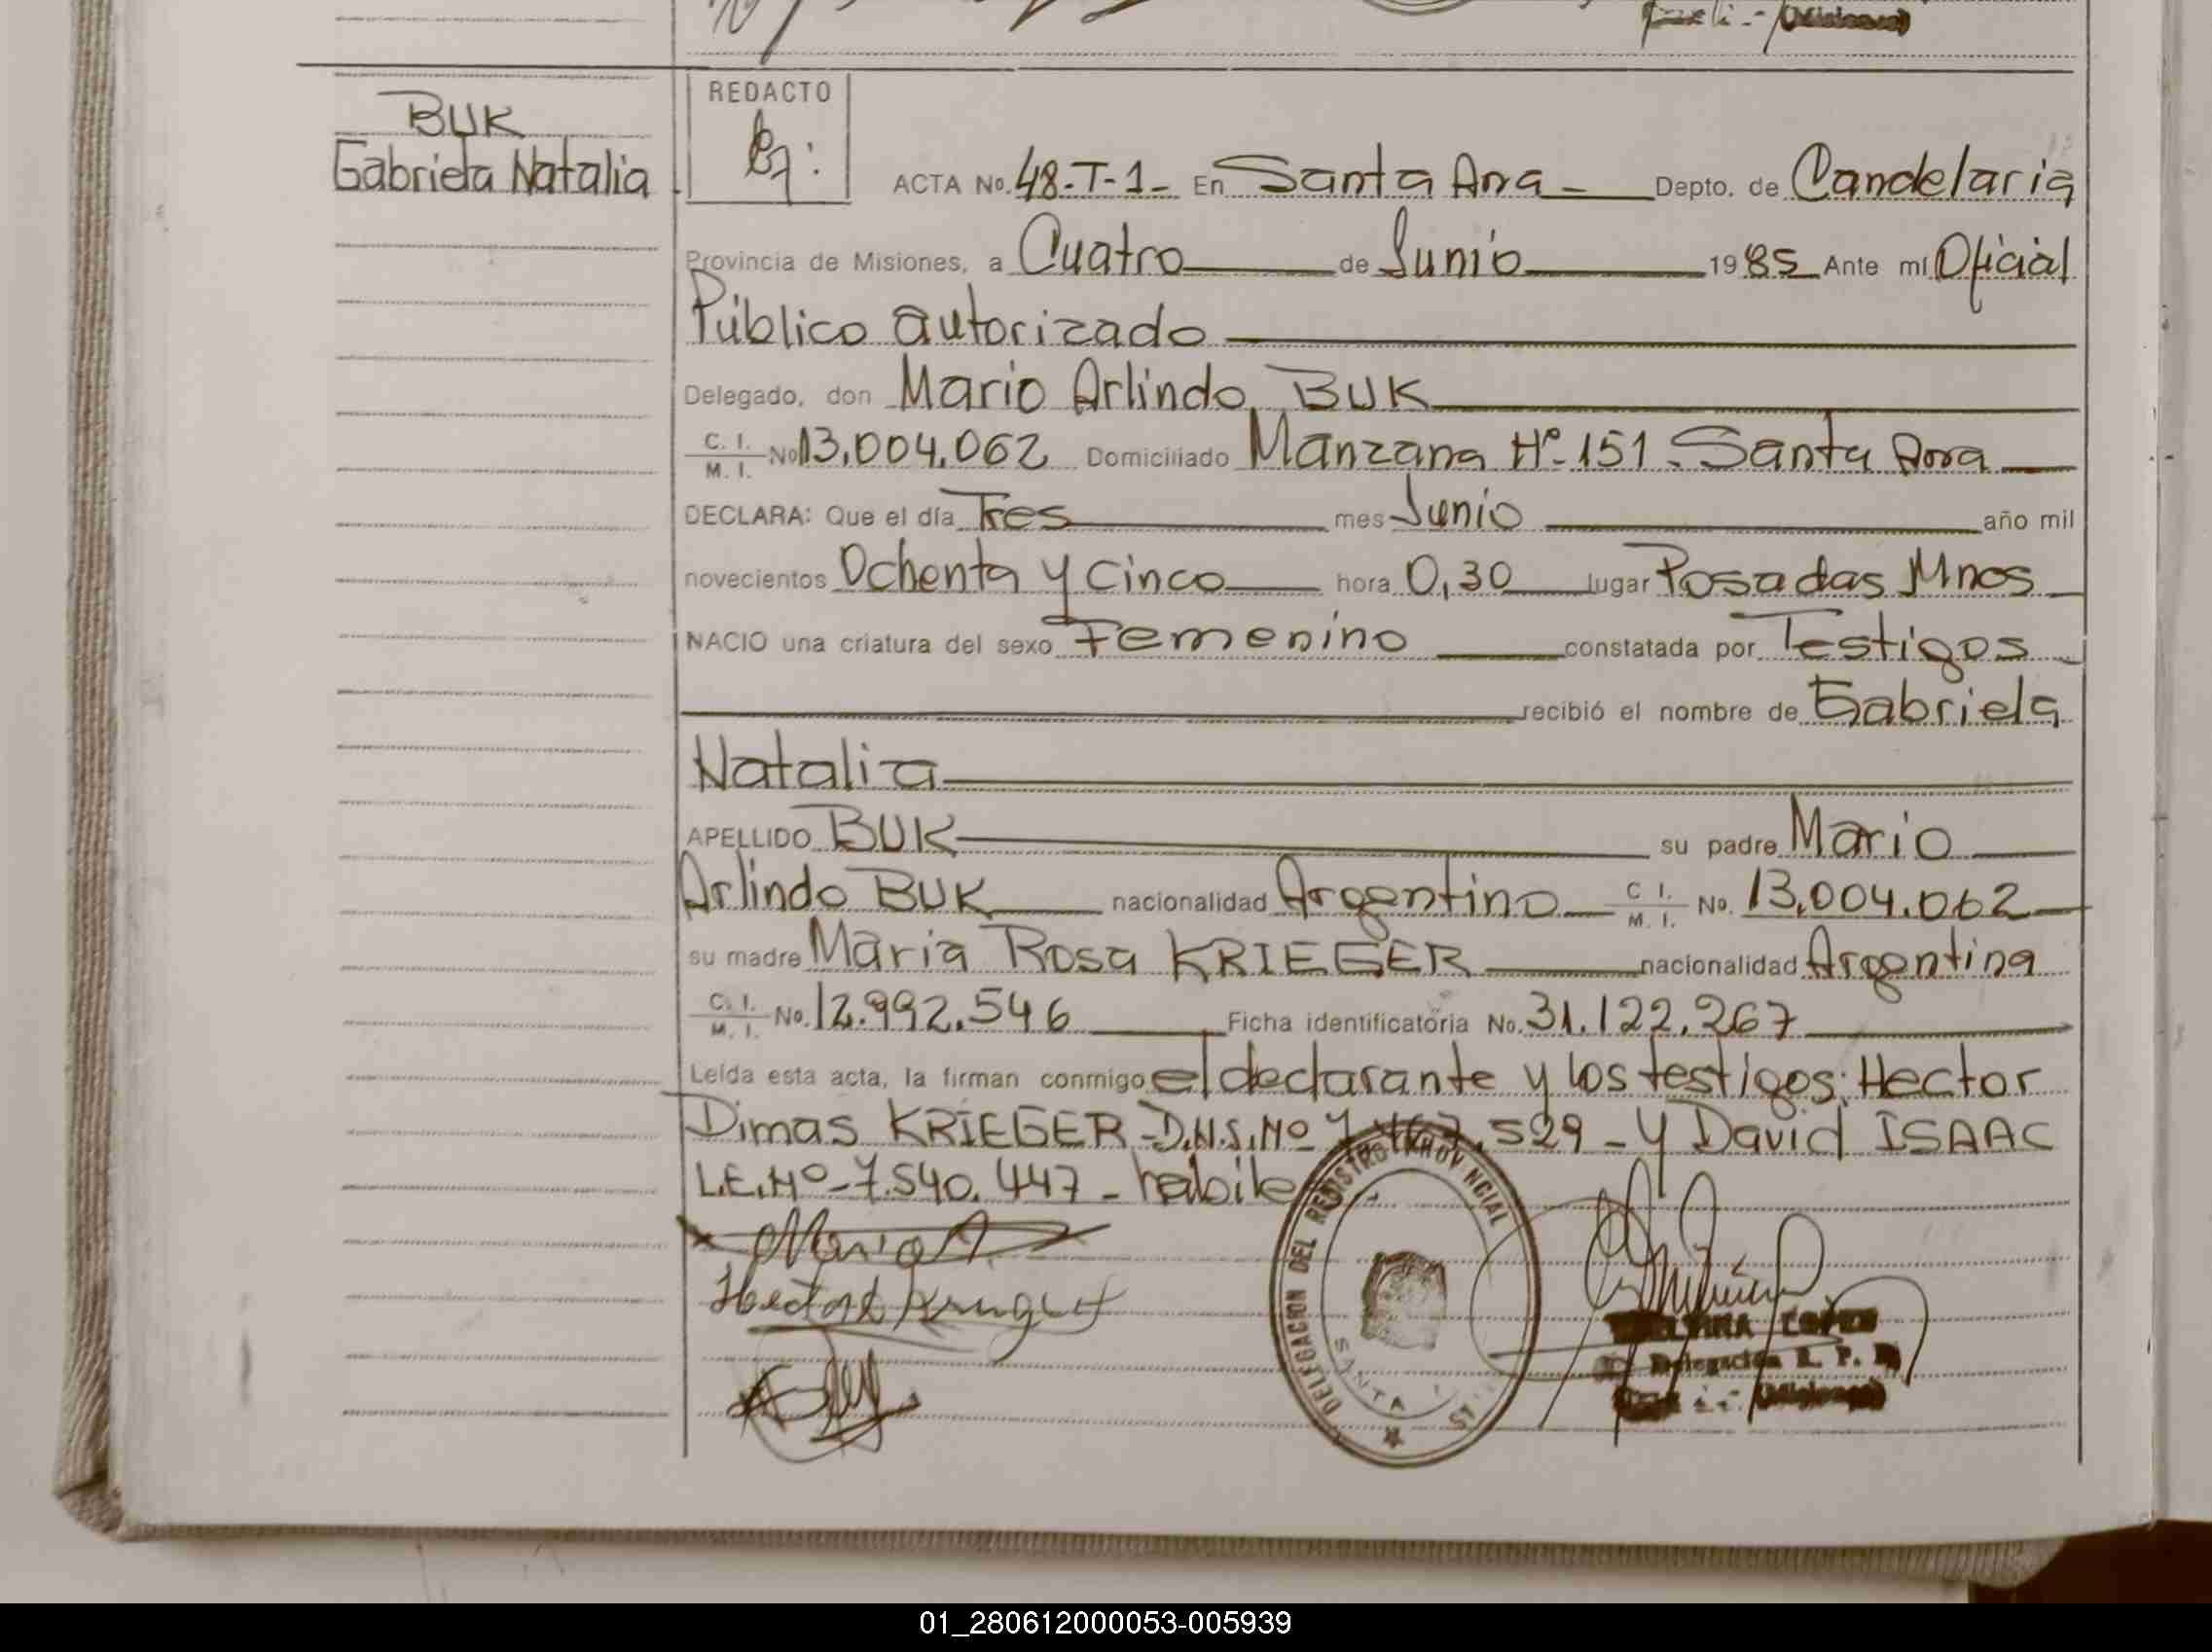 (Misiones)
BUK
Gabriela Natalia
REDACTO
ACTA No. 48-T-1- En Santa Ana - Depto. de Candelaria
Provincia de Misiones, a Cuatro de Junio 1985 Ante mí Oficial
Público autorizado
Delegado, don Mario Arlindo BUK
C. I. / M. I. No 13,004,062 Domiciliado Manzana Nº-151-Santa Ana
DECLARA: Que el día Tres mes Junio año mil
novecientos Ochenta y Cinco hora 0,30 lugar Posadas Mnes
NACIO una criatura del sexo Femenino constatada por Testigos
recibió el nombre de Gabriela
Natalia
APELLIDO BUK su padre Mario
Arlindo BUK nacionalidad Argentino C I. / M. I. No. 13,004.062
su madre Maria Rosa KRIEGER nacionalidad Argentina
C. I. / M. I. No. 12.992.546 Ficha identificatoria No. 31.122.267
Leída esta acta, la firman conmigo el declarante y los testigos: Hector
Dimas KRIEGER-D.N.I.Nº 7.467.529 - y David ISAAC
L.E.Nº-7.540.447- habile
DELEGACION DEL REGISTRO PROVINCIAL
SANTA
LOPEZ
Delegación R. P.
(Misiones)
01_280612000053-005939